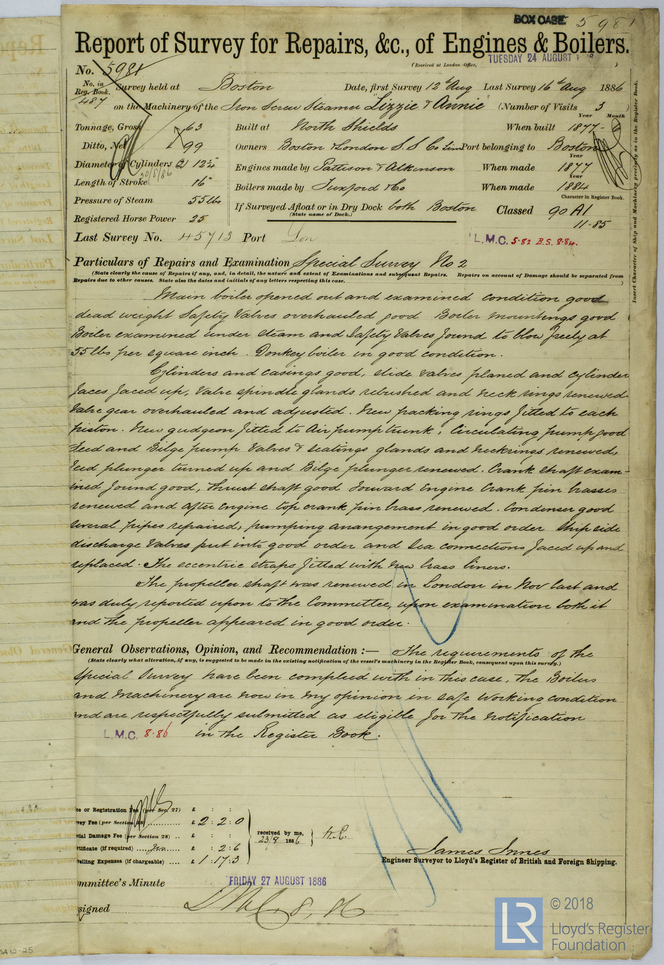 BOX CASE 5981
Report of Survey for Repairs, &c., of Engines & Boilers.
(Received at London Office, TUESDAY 24 AUGUST
No. 5981
No. in Reg. Book. 487
Survey held at Boston Date, first Survey 12th Aug Last Survey 16th Aug 1886
on the Machinery of the Iron Screw Steamer "Lizzie & Annie" (Number of Visits 3
Year Month
Tonnage, Gross 163 Built at North Shields When built 1877
Ditto, Net 99 Owners Boston & London S.S. Co Lim Port belonging to Boston
Year
Diameter of Cylinders 12 Engines made by Pattison & Atkinson When made 1877
20/8/86
Length of Stroke 16" Boilers made by Tuxford & Co When made 1884
Character in Register Book.
Pressure of Steam 55 lbs If Surveyed Afloat or in Dry Dock both Boston Classed 90 A1
(State name of Dock.)
11-85
Registered Horse Power 25
Last Survey No. 45713 Port Lon L.M.C. 5.82 B.S. 8.84.
Insert Character of Ship and Machinery precisely as in the Register Book.
Particulars of Repairs and Examination Special Survey No 2
(State clearly the cause of Repairs if any, and, in detail, the nature and extent of Examinations and subsequent Repairs. Repairs on account of Damage should be separated from
Repairs due to other causes. State also the dates and initials of any letters respecting this case.
Main boiler opened out and examined condition good
dead weight Safety Valves overhauled good Boiler mountings good
Boiler examined under steam and Safety Valves found to blow freely at
55 lbs per square inch. Donkey boiler in good condition.
Cylinders and casings good, slide valves planed and cylinder
faces faced up, valve spindle glands rebushed and neck rings renewed
Valve gear overhauled and adjusted. New packing rings fitted to each
piston. New gudgeon fitted to Air pump trunk; Circulating pump good
Feed and Bilge pump Valves & seatings glands and neckrings renewed,
Feed plunger turned up and Bilge plunger renewed. Crank shaft exam-
ined found good, thrust shaft good Forward Engine Crank pin brasses
renewed and after Engine top crank pin brass renewed. Condenser good
several pipes repaired, pumping arrangement in good order Ship side
discharge Valves put into good order and Sea connections faced up and
replaced. The eccentric straps fitted with new brass liners.
The propeller shaft was renewed in London in Nov last and
was duly reported upon to the Committee, upon examination both it
and the propeller appeared in good order.
General Observations, Opinion, and Recommendation :— The requirements of the
(State clearly what alteration, if any, is suggested to be made in the existing notification of the vessel's machinery in the Register Book, consequent upon this survey.)
Special Survey have been complied with in this case. The Boilers
and Machinery are now in my opinion in safe working condition
and are respectfully submitted as eligible for the notification
L.M.C. 8.86 in the Register Book.
ee or Registration Fee (per Sec. 27) £ : :
vey Fee (per Section 28) £ 2 : 2 : 0
cial Damage Fee (per Section 28) £ : : received by me,
rtificate (if required) £ : 2 : 6 23/8 1886
velling Expenses (if chargeable) £ 1 : 17 : 3
James Innes
Engineer Surveyor to Lloyd's Register of British and Foreign Shipping.
mmittee's Minute FRIDAY 27 AUGUST 1886
signed LMC 8, 86
LR © 2018
Lloyd's Register
Foundation